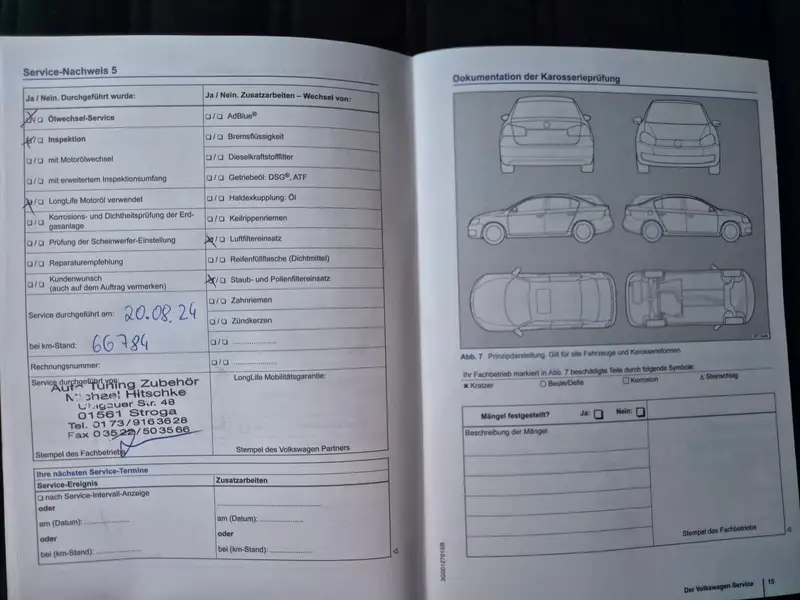 Service-Nachweis 5
Ja / Nein. Durchgeführt wurde:
☒/☐ Ölwechsel-Service
☒/☐ Inspektion
☐/☐ mit Motorölwechsel
☐/☐ mit erweitertem Inspektionsumfang
☒/☐ LongLife Motoröl verwendet
☐/☐ Korrosions- und Dichtheitsprüfung der Erd-
gasanlage
☐/☐ Prüfung der Scheinwerfer-Einstellung
☐/☐ Reparaturempfehlung
☐/☐ Kundenwunsch
(auch auf dem Auftrag vermerken)
Service durchgeführt am: 20.08.24
bei km-Stand: 66784
Rechnungsnummer:
Service durchgeführt von:
Auto Tuning Zubehör
Michael Hitschke
Str. 48
01561 Stroga
Tel. 0173/9163628
Fax 03522/503566
Stempel des Fachbetriebs
Ja / Nein. Zusatzarbeiten – Wechsel von:
☐/☐ AdBlue®
☐/☐ Bremsflüssigkeit
☐/☐ Dieselkraftstofffilter
☐/☐ Getriebeöl: DSG®, ATF
☐/☐ Haldexkupplung: Öl
☐/☐ Keilrippenriemen
☒/☐ Luftfiltereinsatz
☐/☐ Reifenfüllflasche (Dichtmittel)
☒/☐ Staub- und Pollenfiltereinsatz
☐/☐ Zahnriemen
☐/☐ Zündkerzen
☐/☐ ....................
☐/☐ ....................
LongLife Mobilitätsgarantie:
Stempel des Volkswagen Partners
Ihre nächsten Service-Termine
Service-Ereignis
☐ nach Service-Intervall-Anzeige
oder
am (Datum): ....................
oder
bei (km-Stand): ....................
Zusatzarbeiten
....................
am (Datum): ....................
oder
bei (km-Stand): ....................
Dokumentation der Karosserieprüfung
Abb. 7 Prinzipdarstellung. Gilt für alle Fahrzeuge und Karosserieformen.
Ihr Fachbetrieb markiert in Abb. 7 beschädigte Teile durch folgende Symbole:
× Kratzer ○ Beule/Delle ☐ Korrosion △ Steinschlag
Mängel festgestellt? Ja: ☐ Nein: ☐
Beschreibung der Mängel
Stempel des Fachbetriebs
3G0012701SB
Der Volkswagen Service 15